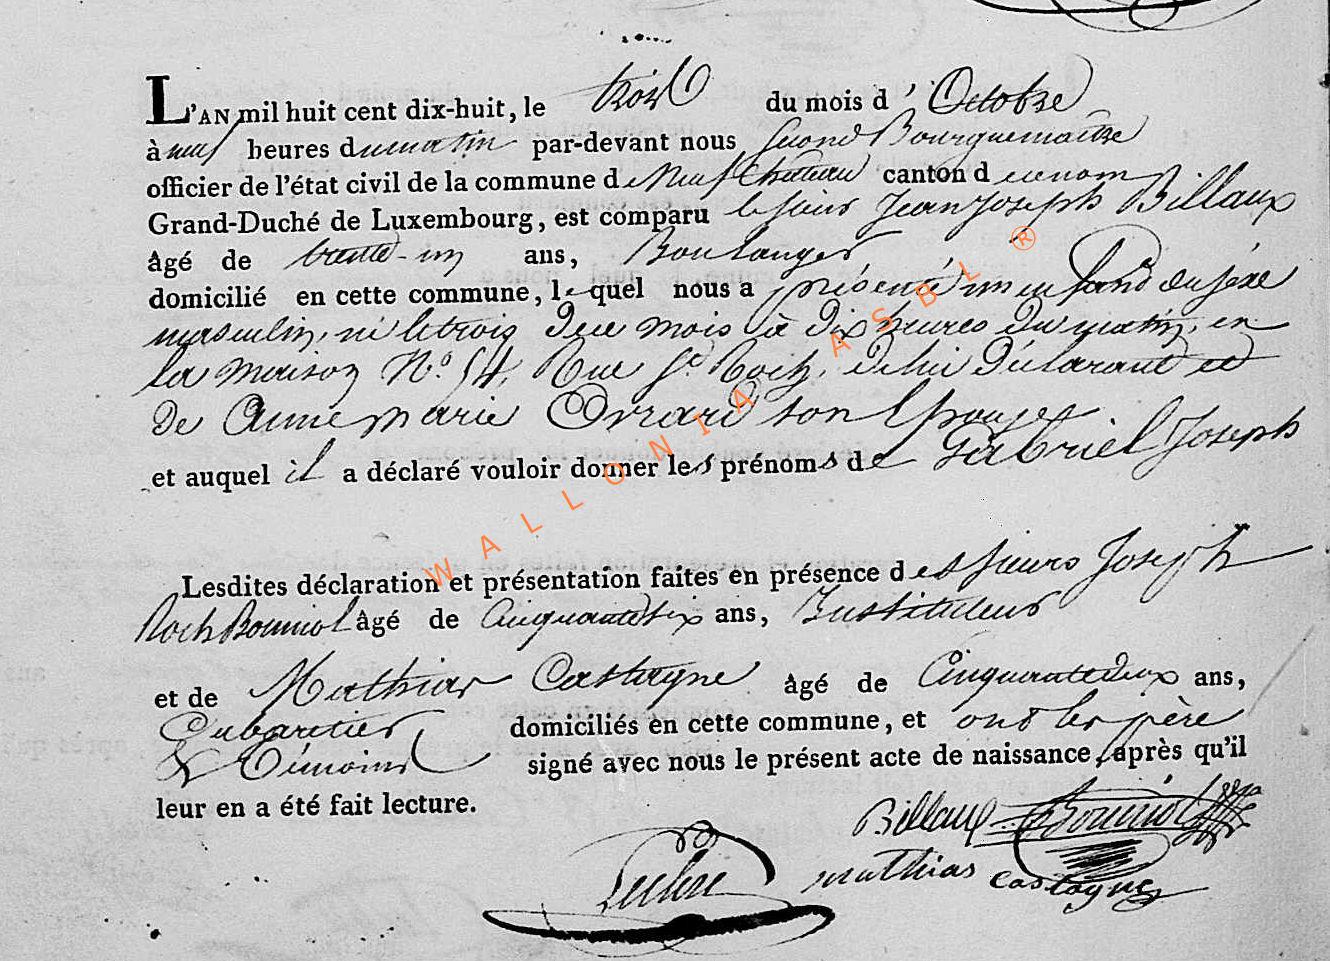 L'AN mil huit cent dix-huit, le trois du mois d'Octobre
à neuf heures du matin par-devant nous second Bourguemaitre
officier de l'état civil de la commune de Neufchateau canton de ce nom
Grand-Duché de Luxembourg, est comparu le sieur Jean Joseph Billaux
âgé de trente-un ans, Boulanger
domicilié en cette commune, lequel nous a présenté un enfand du séxe
masculin, né le trois du mois à dix heures du matin, en
la maison N.° 54, Rue St Roch, de lui déclarant et
de Anne marie Evrard son Epouse
et auquel il a déclaré vouloir donner les prénoms de Gabriel Joseph
Lesdites déclaration et présentation faites en présence des sieurs Joseph
Roch Bouniol âgé de Cinquante six ans, Instituteur
et de Mathias Castagne âgé de Cinquante deux ans,
Cabaretier domiciliés en cette commune, et ont les père
& Témoins signé avec nous le présent acte de naissance, après qu'il
leur en a été fait lecture.
Billaux Bouniol
mathias Castagne
WALLONIA ASBL ®